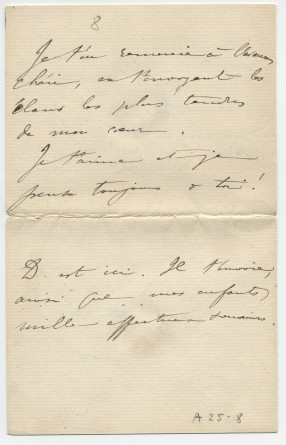 8
Je t'en remercie à
chéri, en t'envoyant les
élans les plus tendres
de mon cœur.
Je t'aime et je
pense toujours à toi!
D. est ici. Il t'envoie,
ainsi que mes enfants,
mille affectueux
A 25-8